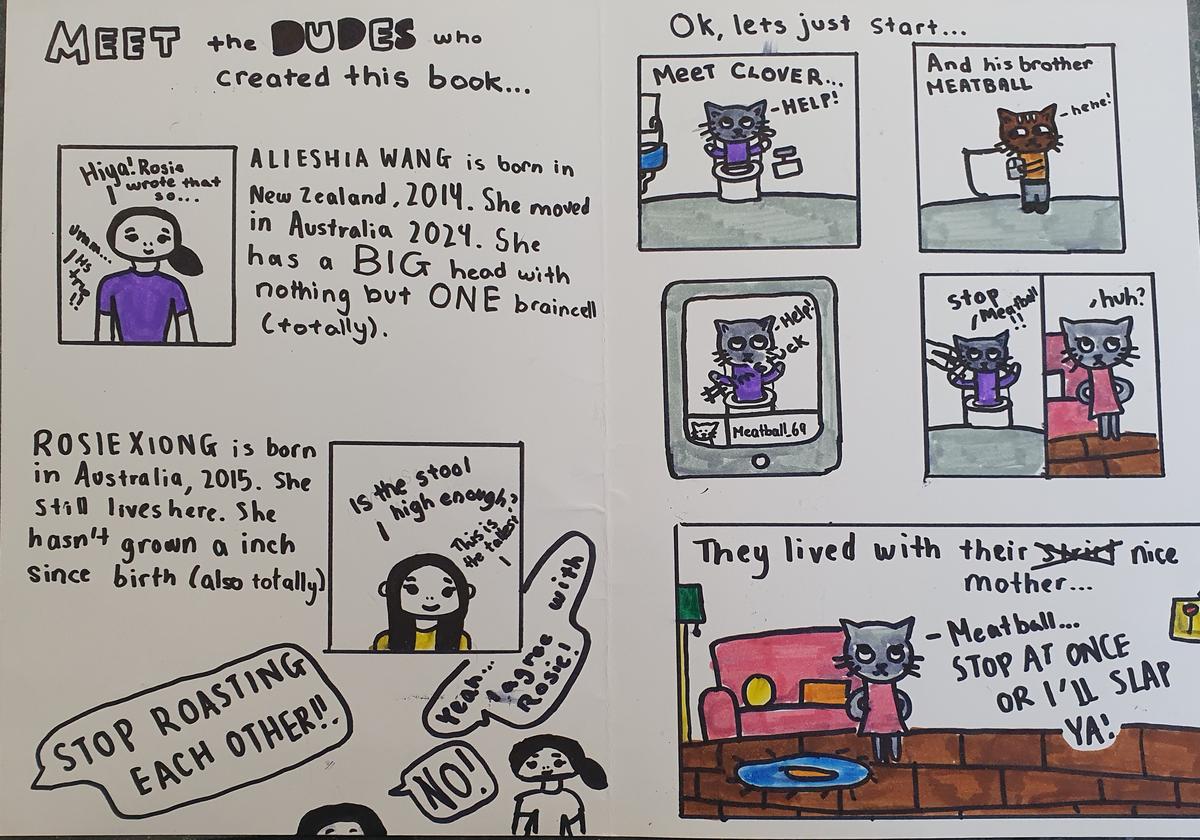 MEET the DUDES who
created this book...
Hiya! Rosie
wrote that
so...
umm...
ALIESHIA WANG is born in
New Zealand, 2014. She moved
in Australia 2024. She
has a BIG head with
nothing but ONE braincell
(totally).
ROSIE XIONG is born
in Australia, 2015. She
still lives here. She
hasn't grown a inch
since birth (also totally)
Is the stool
high enough?
This is
the tallest
Yeah...
I agree with
Rosie!
STOP ROASTING
EACH OTHER!!
NO!
Ok, lets just start...
MEET CLOVER...
-HELP!
And his brother
MEATBALL
-hehe!
-Help!
Meatball_69
Stop
Meatball
!!
huh?
They lived with their strict nice
mother...
-Meatball...
STOP AT ONCE
OR I'LL SLAP
YA!